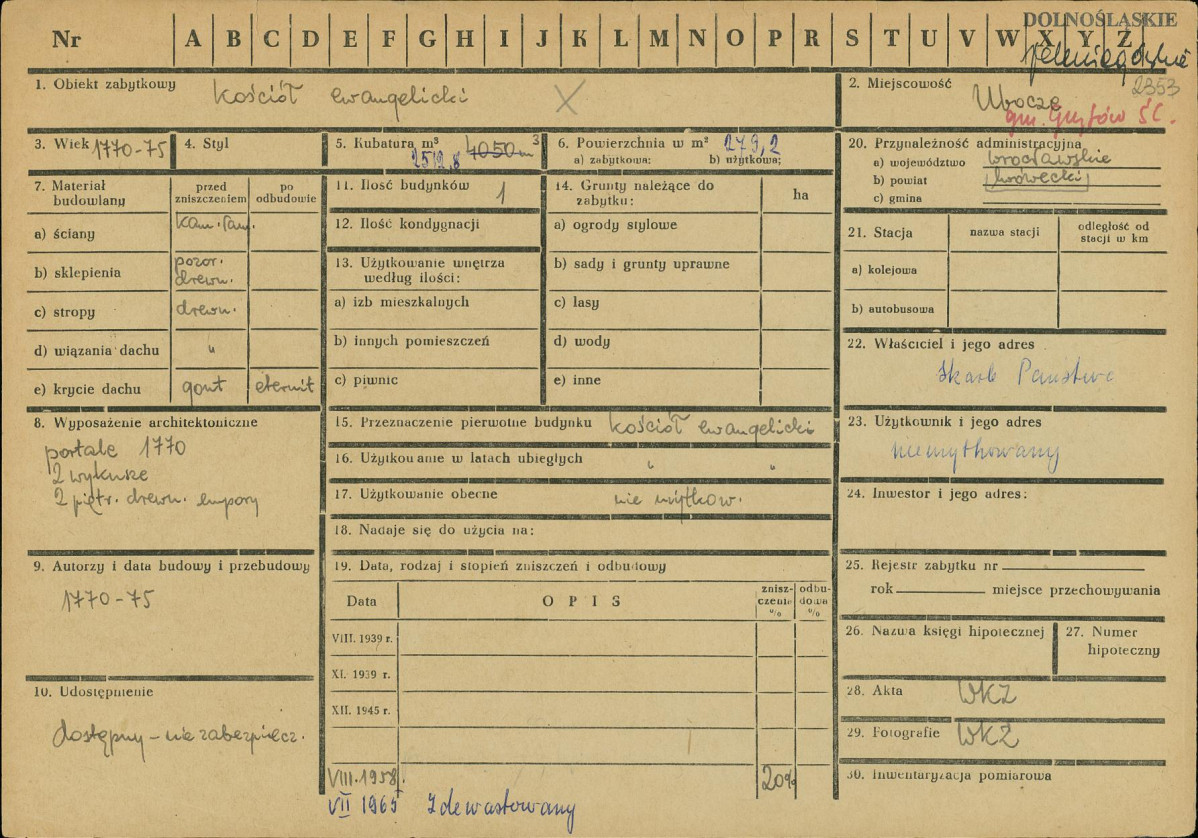 DOLNOŚLĄSKIE
Nr A B C D E F G H I J K L M N O P R S T U V W X Y Z
2353
1. Obiekt zabytkowy kościół ewangelicki X
2. Miejscowość Ubocze
gm. Gryfów Śl.
3. Wiek 1770-75
4. Styl
5. Kubatura m³ 4050 m³
2512,8
6. Powierzchnia w m² 279,2
a) zabytkowa: b) użytkowa:
20. Przynależność administracyjna
a) województwo wrocławskie
b) powiat lwówecki
c) gmina
7. Materiał budowlany
przed zniszczeniem
po odbudowie
a) ściany kam. łam.
b) sklepienia pozor. drewn.
c) stropy drewn.
d) wiązania dachu "
e) krycie dachu gont eternit
11. Ilość budynków 1
12. Ilość kondygnacji
13. Użytkowanie wnętrza
według ilości:
a) izb mieszkalnych
b) innych pomieszczeń
c) piwnic
14. Grunty należące do
zabytku: ha
a) ogrody stylowe
b) sady i grunty uprawne
c) lasy
d) wody
e) inne
21. Stacja nazwa stacji odległość od stacji w km
a) kolejowa
b) autobusowa
22. Właściciel i jego adres
Skarb Państwa
8. Wyposażenie architektoniczne
portale 1770
2 wykusze
2 piętr. drewn. empory
15. Przeznaczenie pierwotne budynku kościół ewangelicki
16. Użytkowanie w latach ubiegłych " "
17. Użytkowanie obecne nie użytkow.
18. Nadaje się do użycia na:
23. Użytkownik i jego adres
nieużytkowany
24. Inwestor i jego adres:
9. Autorzy i data budowy i przebudowy
1770-75
10. Udostępnienie
dostępny - nie zabezpiecz.
19. Data, rodzaj i stopień zniszczeń i odbudowy
Data OPIS zniszczenie % odbudowa %
VIII. 1939 r.
XI. 1939 r.
XII. 1945 r.
VIII. 1958 r. 20%
VII 1965 Zdewastowany
25. Rejestr zabytku nr
rok miejsce przechowywania
26. Nazwa księgi hipotecznej
27. Numer
hipoteczny
28. Akta WKZ
29. Fotografie WKZ
30. Inwentaryzacja pomiarowa